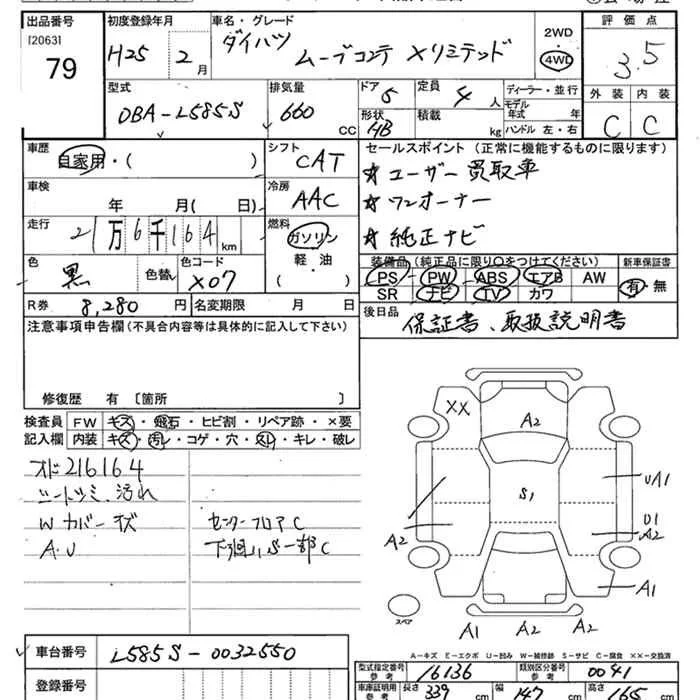 出品番号
[2063]
79
初度登録年月
H25 2月
車名・グレード
ダイハツ ムーブコンテ Xリミテッド
2WD
4WD
評価点
3.5
外装 内装
C C
型式
DBA-L585S
排気量
660 CC
ドア 5
形状 HB
定員 4人
積載 kg
ディーラー・並行
モデル
年式 年
ハンドル 左・右
車歴
自家用・( )
シフト
CAT
セールスポイント (正常に機能するものに限ります)
☆ユーザー買取車
☆ワンオーナー
☆純正ナビ
車検
年 月( 日)
冷房
AAC
走行
2万6千164km
燃料
ガソリン
軽油
( )
色
黒 色替
色コード
X07
装備品 (純正品に限り○をつけてください)
PS PW ABS エアB AW
SR ナビ TV カワ
新車保証書
有・無
R券 8,280円
名変期限 月 日
後日品
保証書、取扱説明書
注意事項申告欄(不具合内容等は具体的に記入して下さい)
修復歴 有 〔箇所 〕
検査員 FW キズ・飛石・ヒビ割・リペア跡・×要
記入欄 内装 キズ・汚レ・コゲ・穴・スレ・キレ・破レ
オド216164
シートツミ、汚れ
Wカバーキズ
センターフロアC
A・U
下廻りS一部C
XX
A2
S1
UA1
U1
A2
A2
A1
スペア
A1
A2
A2
A-キズ E-エクボ U-凹み W-補修跡 S-サビ C-腐食 XX-交換済
車台番号 L585S-0032550
登録番号
型式指定番号
参考
16136
類別区分番号
参考
0041
車庫証明用
参考
長さ 339 cm
幅 147 cm
高さ 165 cm